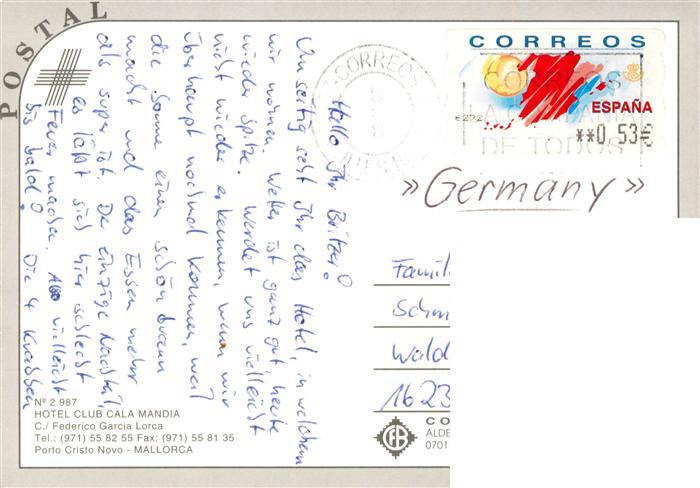 POSTAL
CORREOS
ESPAÑA
**0,53€
CORREOS
DE TODOS
»Germany»
Hallo Ihr Britzer!
Umseitig seht Ihr das Hotel, in welchem
wir wohnen. Wetter ist ganz gut, heute
wieder spitze. Werdet uns vielleicht
nicht wieder erkennen, wenn wir
überhaupt nochmal kommen, weil
die Sonne einen schön braun
macht und das Essen mehr
als super ist. Der einzige Nachteil,
es läßt sich hier schlecht
Feuer machen. Also vielleicht
bis bald! Die 4 Knassen
Famil
Schm
Wald
1623
Nº 2.987
HOTEL CLUB CALA MANDIA
C./ Federico Garcia Lorca
Tel.: (971) 55 82 55 Fax: (971) 55 81 35
Porto Cristo Novo - MALLORCA
CO
ALDE
0701